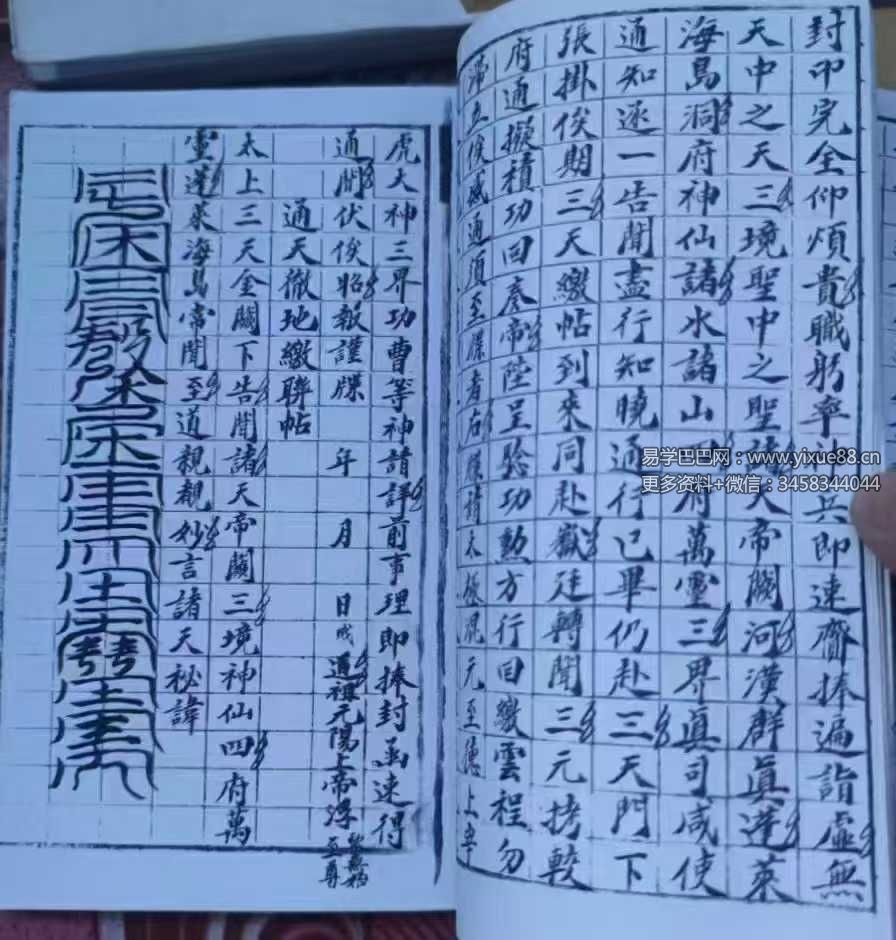 封印完全仰煩貴職躬率神兵即速齎捧遍詣虛無
天中之天三境聖中之聖諸天帝闕河漢群真蓬萊
海島洞府神仙諸水諸山四府萬靈三界真司咸使
通知逐一告聞盡行知曉通行已畢仍赴三天門下
張掛俟期三天繳帖到來同赴嶽廷轉聞三元考較
府通擬積功回奏帝陛呈驗功勲方行回繳雲程勿
滯立俟感通須至牒者右牒請太極混元至德上宰
虎大神三界功曹等神請詳前事理即捧封函速得
通聞伏俟昭報謹牒 年 月 日戒 道祖元陽上帝浮黎無始至尊
通天徹地繳聯帖
太上三天金闕下告聞諸天帝闕三境神仙四府萬
靈蓬萊海島常聞至道親覩妙言諸天秘諱
易学巴巴网：www.yixue88.cn
更多资料+微信：3458344044